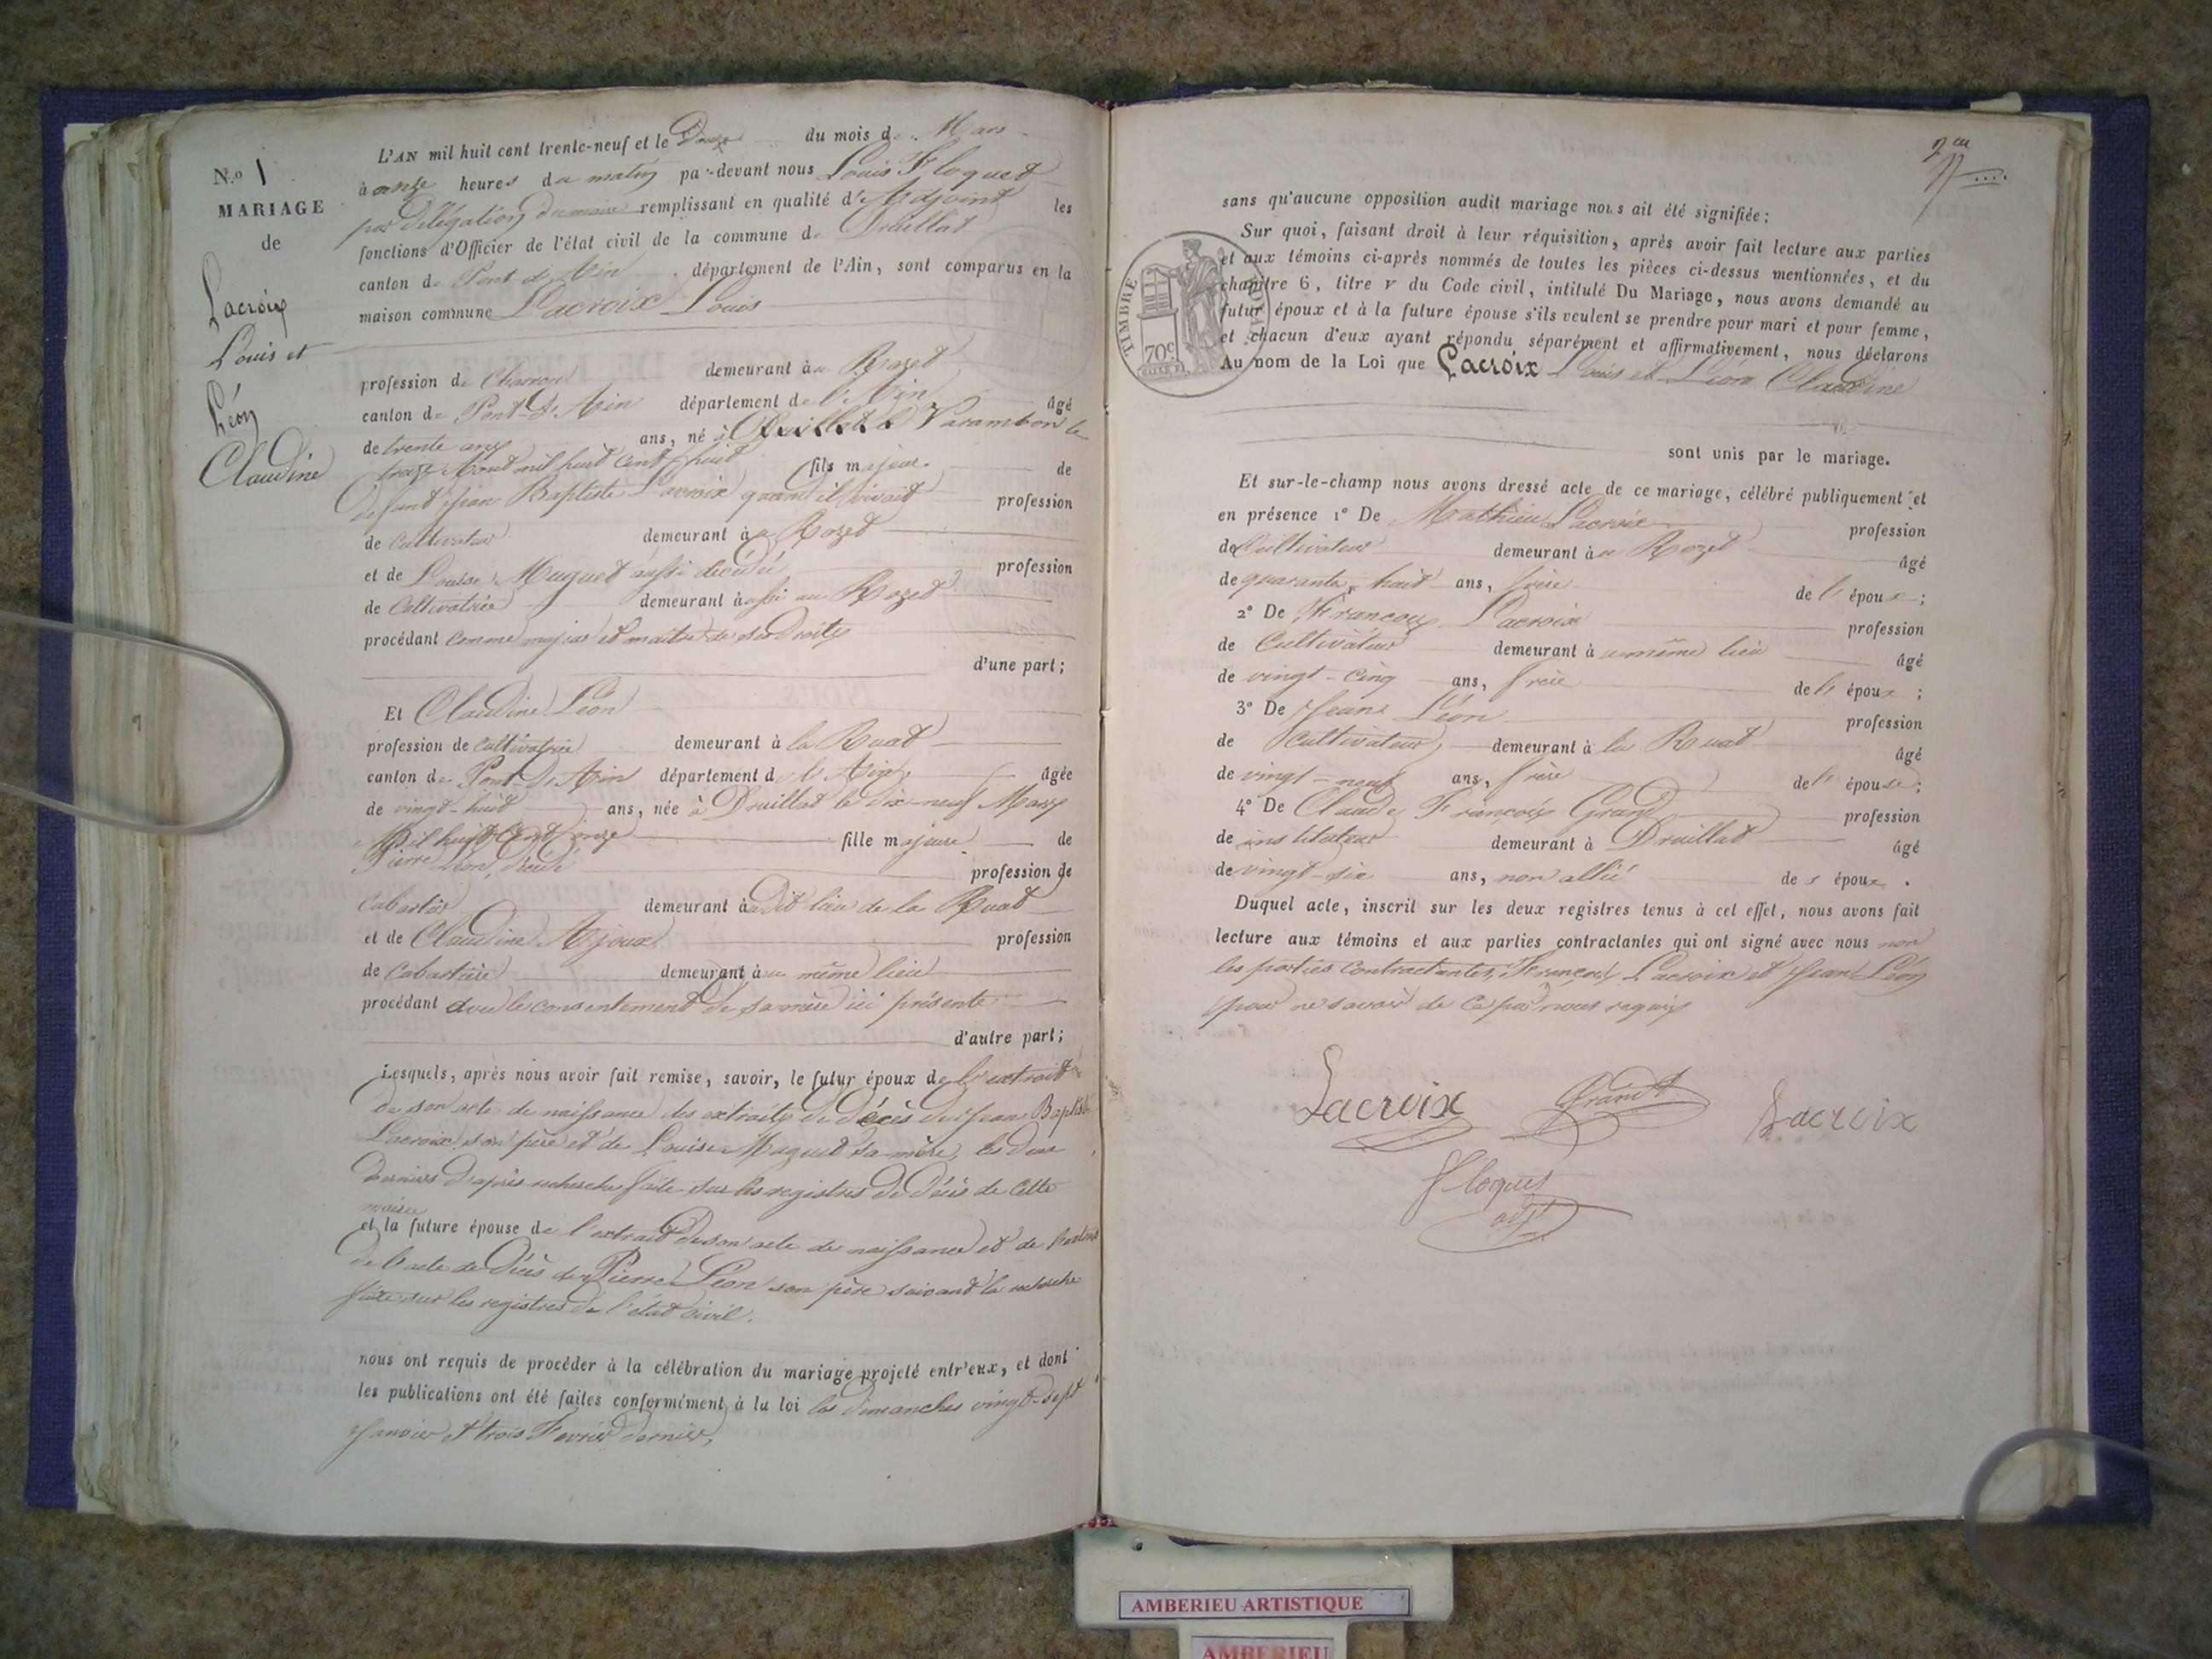 N.o 1
MARIAGE
de
Lacroix
Louis et
Léon
Claudine
L'AN mil huit cent trente-neuf et le Douze du mois de Mars
à onze heures du matin par-devant nous Louis Floquet
par Délégation du maire remplissant en qualité d'Adjoint les
fonctions d'Officier de l'état civil de la commune de Druillat
canton de Pont d'Ain, département de l'Ain, sont comparus en la
maison commune Lacroix Louis
profession de Charron demeurant au Rozet
canton de Pont-d'Ain département de l'Ain, âgé
de trente ans ans, né à Varambon le
treize Août mil huit cent huit fils majeur de
défunt Jean Baptiste Lacroix quand il vivait profession
de Cultivateur demeurant au Rozet
et de Louise Muguet aussi décédée profession
de Cultivatrice demeurant aussi au Rozet
procédant comme majeur et maître de ses Droits
d'une part;
Et Claudine Léon
profession de cultivatrice demeurant à la Ruat
canton de Pont-d'Ain département de l'Ain, âgée
de vingt-huit ans, née à Druillat le dix-neuf Mars
Mil huit Cent onze fille majeure de
Pierre Léon, décédé profession de
Cabartier demeurant audit lieu de la Ruat
et de Claudine Ajoux profession
de Cabartière demeurant au même lieu
procédant avec le consentement de sa mère ici présente
d'autre part;
Lesquels, après nous avoir fait remise, savoir, le futur époux de l'extrait
de son acte de naissance des extraits de décès de Jean Baptiste
Lacroix son père et de Louise Muguet sa mère, les deux
derniers d'après recherche faite sur les registres de Décès de cette
mairie
et la future épouse de l'extrait de son acte de naissance et de l'extrait
de l'acte de Décès de Pierre Léon son père suivant la recherche
faite sur les registres de l'état civil.
nous ont requis de procéder à la célébration du mariage projeté entr'eux, et dont
les publications ont été faites conformément à la loi les dimanches vingt-sept
Janvier et trois Février dernier,
sans qu'aucune opposition audit mariage nous ait été signifiée;
Sur quoi, faisant droit à leur réquisition, après avoir fait lecture aux parties
et aux témoins ci-après nommés de toutes les pièces ci-dessus mentionnées, et du
chapitre 6, titre v du Code civil, intitulé Du Mariage, nous avons demandé au
futur époux et à la future épouse s'ils veulent se prendre pour mari et pour femme,
et chacun d'eux ayant répondu séparément et affirmativement, nous déclarons
Au nom de la Loi que Lacroix Louis et Léon Claudine
TIMBRE ROYAL
70c
sont unis par le mariage.
Et sur-le-champ nous avons dressé acte de ce mariage, célébré publiquement et
en présence 1° De Mathieu Lacroix profession
de Cultivateur demeurant au Rozet âgé
de quarante-huit ans, frère de l'époux;
2° De François Lacroix profession
de Cultivateur demeurant au même lieu âgé
de vingt-cinq ans, frère de l'époux;
3° De Jean Léon profession
de Cultivateur demeurant à la Ruat âgé
de vingt-neuf ans, frère de l'épouse;
4° De Claude François Grand profession
de instituteur demeurant à Druillat âgé
de vingt-six ans, non allié des époux.
Duquel acte, inscrit sur les deux registres tenus à cet effet, nous avons fait
lecture aux témoins et aux parties contractantes qui ont signé avec nous non
les parties Contractantes, François Lacroix et Jean Léon
pour ne savoir de ce par nous requis
Lacroix Grand Lacroix
Floquet
adjt
AMBERIEU ARTISTIQUE
AMBERIEU